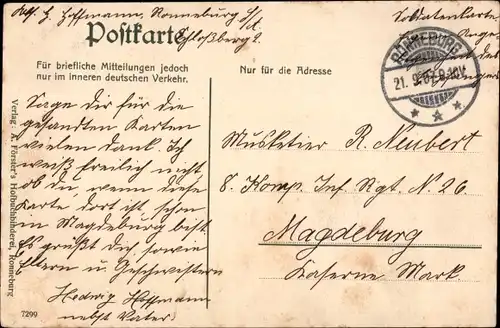 Hoffmann, Ronneburg S/A.
Schloßberg 2.
Postkarte
Soldatenkarte
Für briefliche Mitteilungen jedoch
nur im inneren deutschen Verkehr.
Nur für die Adresse
RONNEBURG
21. 9. 07. 8-10V.
Sage dir für die
gesandten Karten
vielen Dank. Ich
weiß freilich nicht
ob du, wenn diese
Karte dort ist schon
in Magdeburg bist
Es grüßt dich sowie
Eltern u. Geschwistern
Hedwig Hoffmann
nebst Vater.
Musketier R. Neubert
8. Komp. Inf. Rgt. N. 26.
Magdeburg
Kaserne Mark.
Verlag: A. Förster's Hofbuchbinderei, Ronneburg
7299